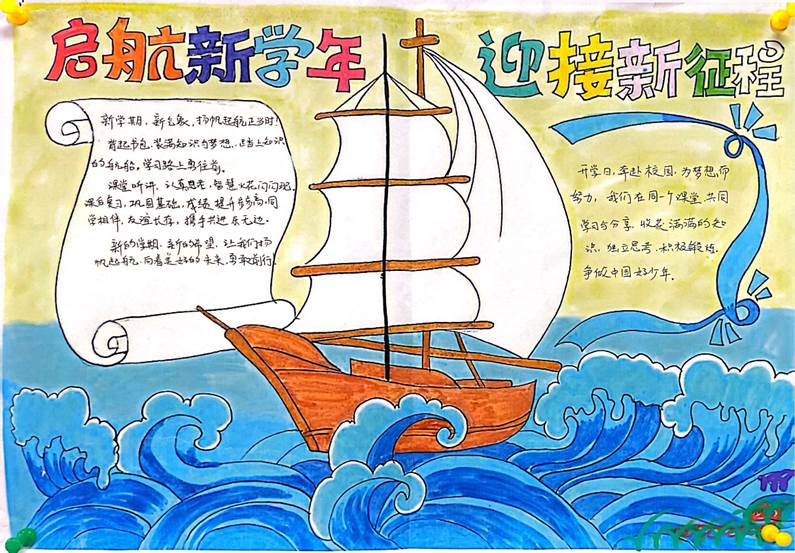 启航新学年 迎接新征程
新学期,新气象,扬帆起航正当时!
背起书包,装满知识与梦想,踏上知识
的航船,学习路上勇往前。
课堂听讲,认真思考,智慧火花闪闪现。
课后复习,巩固基础,成绩提升步步高。同
学相伴,友谊长存,携手共进乐无边。
新的学期,新的希望,让我们扬
帆起航,向着美好的未来,勇敢前行。
开学日,奔赴校园,为梦想而
努力,我们在同一个课堂,共同
学习与分享,收获满满的知
识,独立思考,积极锻炼,
争做中国好少年。